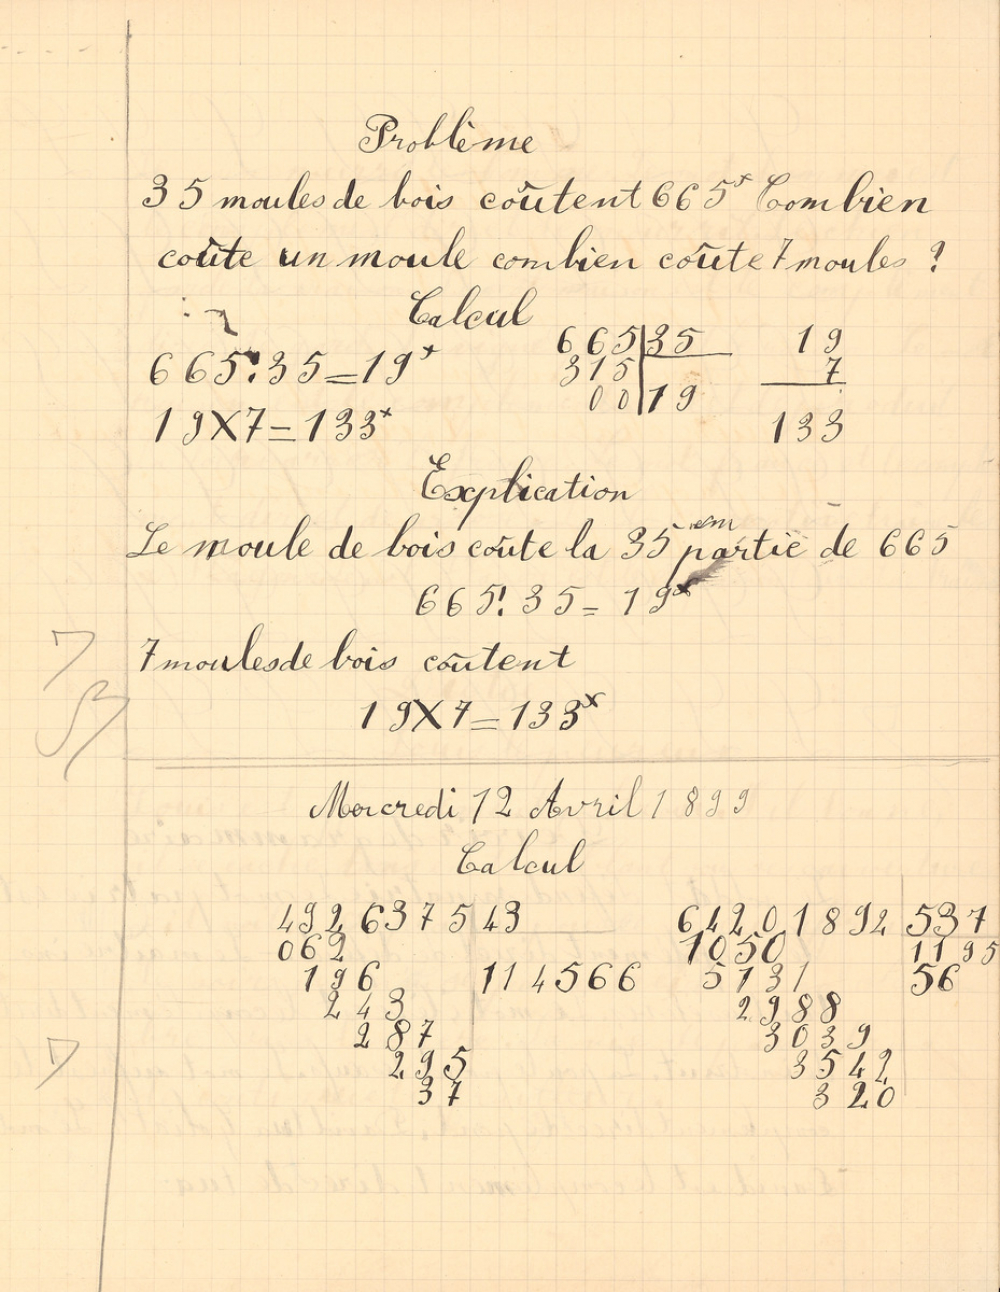 Problême
35 moules de bois coûtent 665ᶠ Combien
coûte un moule combien coûte 7 moules ?
Calcul
665:35=19ᶠ
19X7=133ᶠ
665 35
315
00 19
19
7
133
Explication
Le moule de bois coûte la 35ᵉᵐ partie de 665
665:35=19ᶠ
7 moules de bois coûtent
19X7=133ᶠ
Mercredi 12 Avril 1899
Calcul
4926375 43
062
196 114566
243
287
295
37
64201892 537
1050 1195
5131 56
2988
3039
3542
320